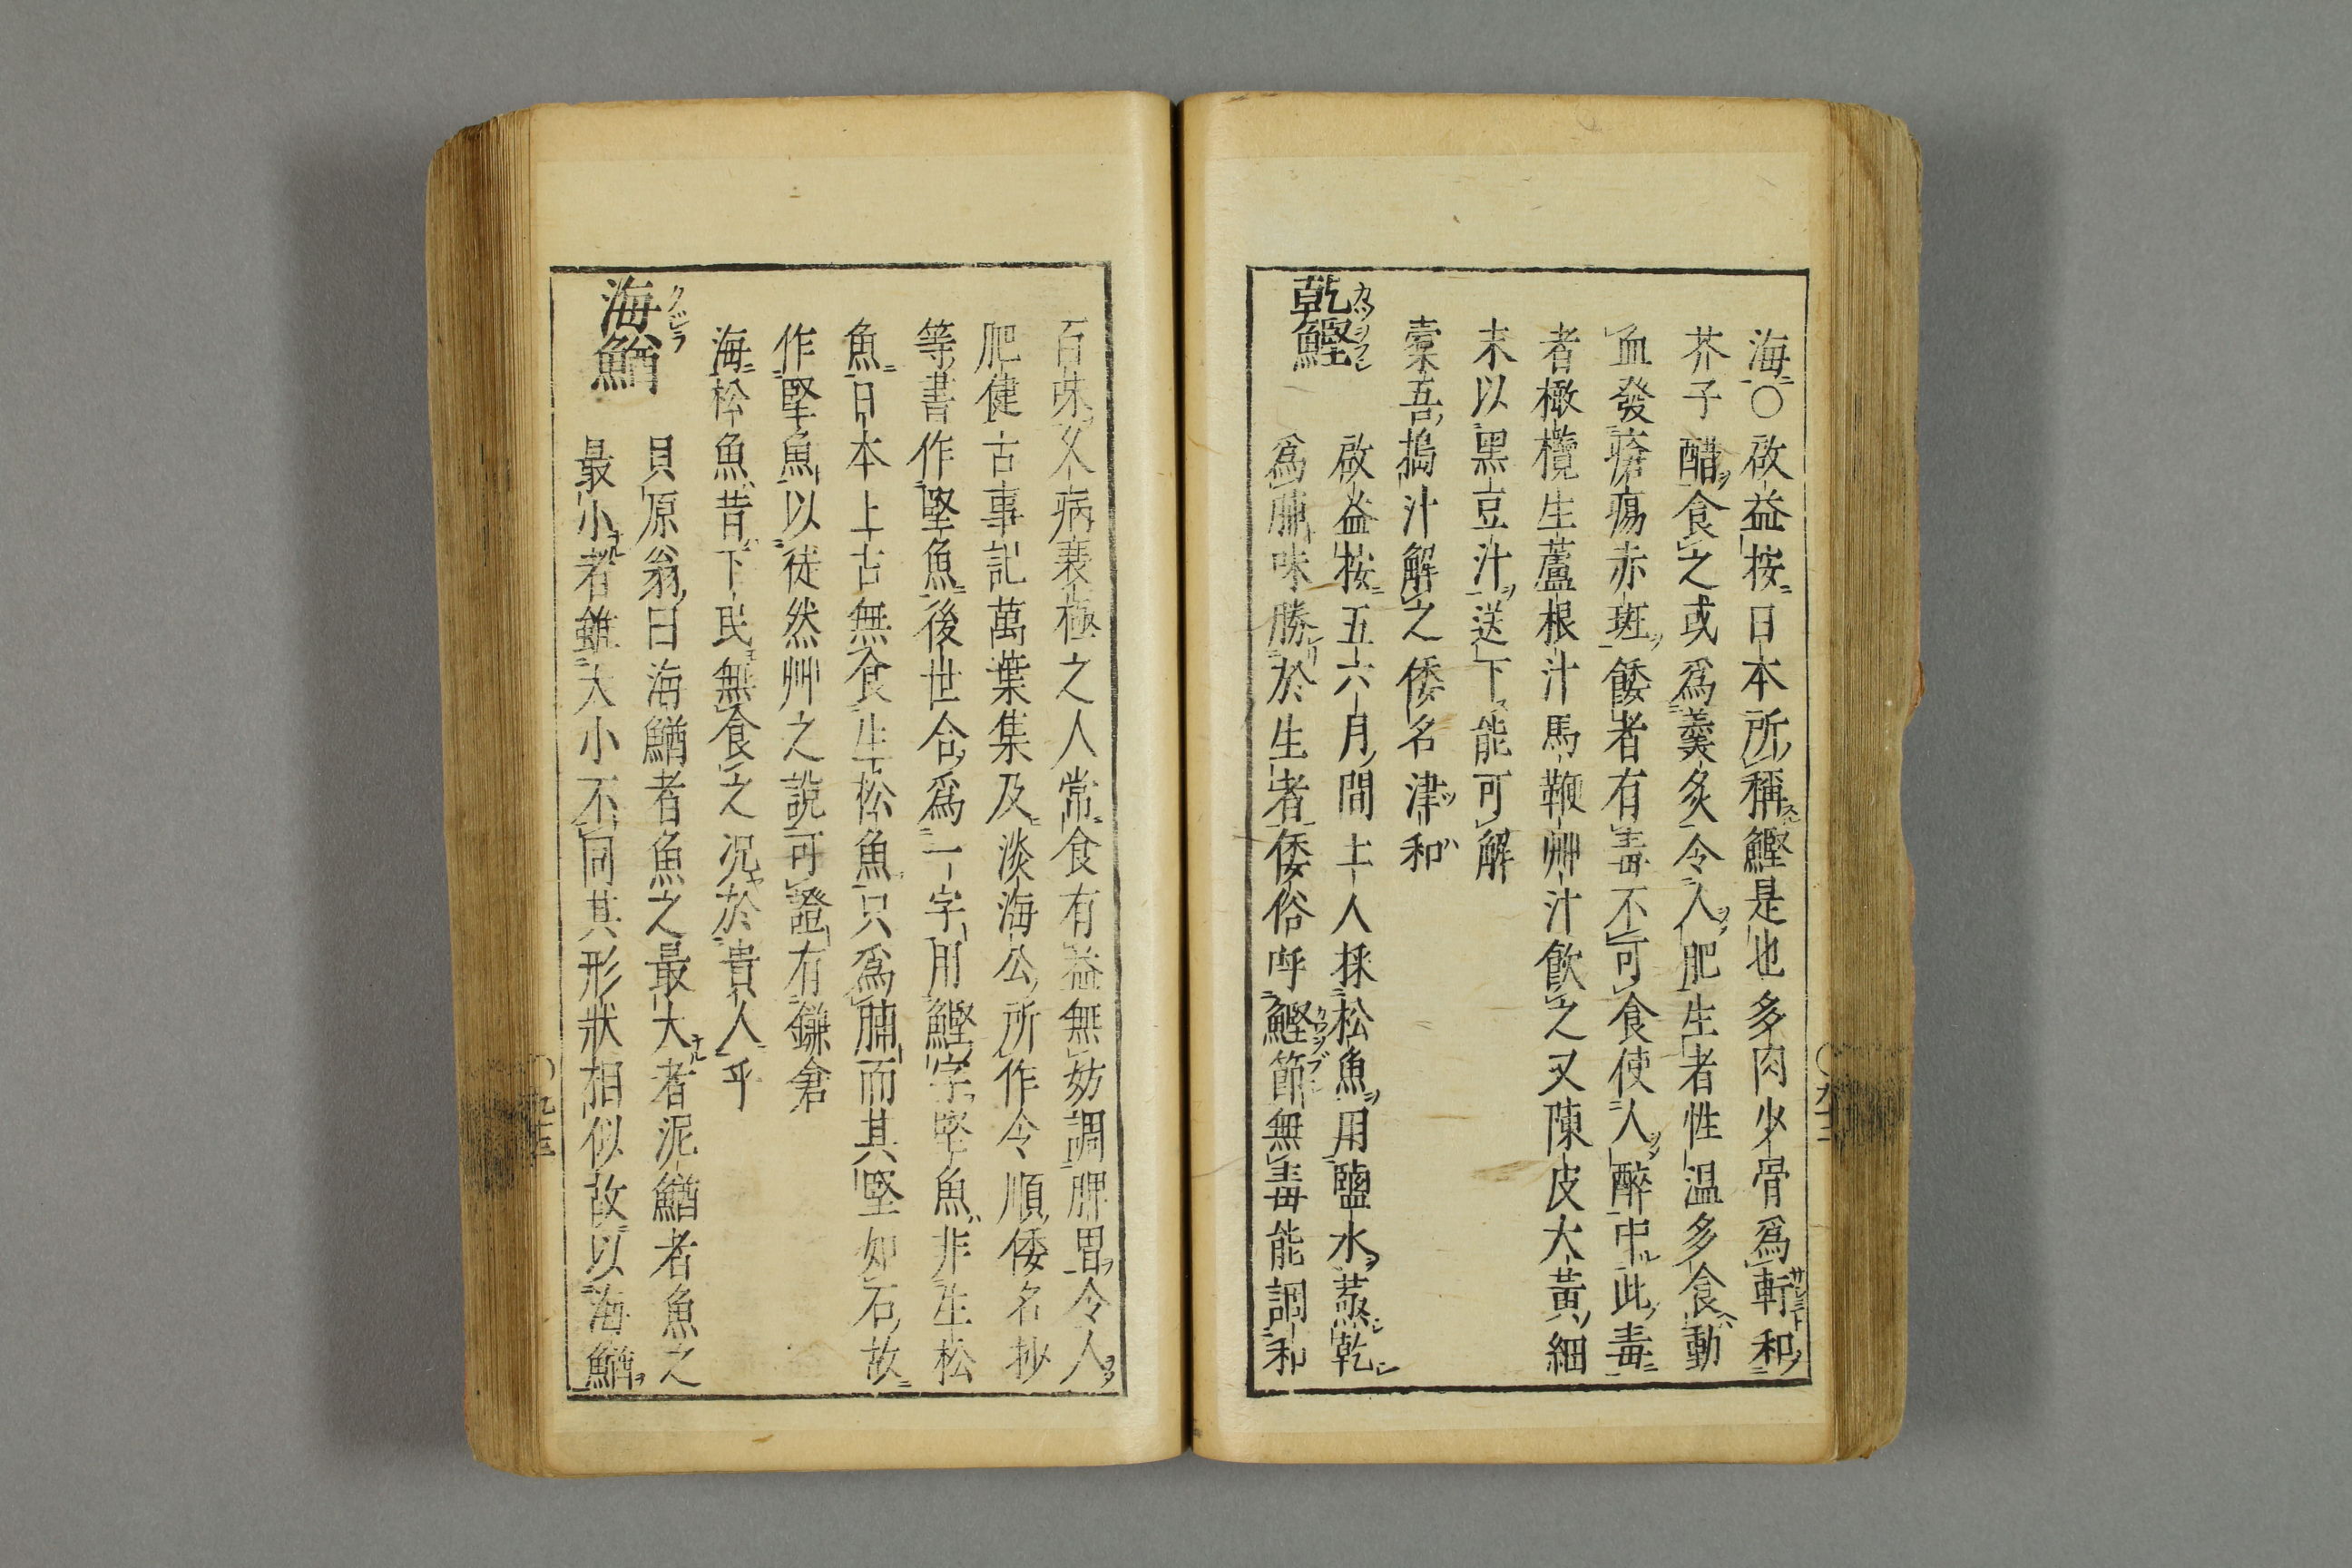 海○啟益按日本所稱鰹是也多肉少骨爲軒和
芥子醋食之或爲羮炙令人肥生者性温多食動
血發瘡瘍赤斑餧者有毒不可食使人醉中此毒
者橄欖生蘆根汁馬鞭艸汁飲之又陳皮大黄細
末以黒豆汁送下能可解
槖吾搗汁解之倭名津和
乾鰹
啟益按五六月間土人採松魚用鹽水蒸乾
爲脯味勝於生者倭俗呼鰹節無毒能調和
百味又病衰極之人常食有益無妨調脾胃令人
肥健古事記萬葉集及淡海公所作令順倭名抄
等書作堅魚後世合爲一字用鰹字堅魚非生松
魚日本上古無食生松魚只爲脯而其堅如石故
作堅魚以徒然艸之説可證有鎌倉
海松魚昔下民無食之况於貴人乎
海鰌
貝原翁曰海鰌者魚之最大者泥鰌者魚之
最小者雖大小不同其形狀相似故以海鰌